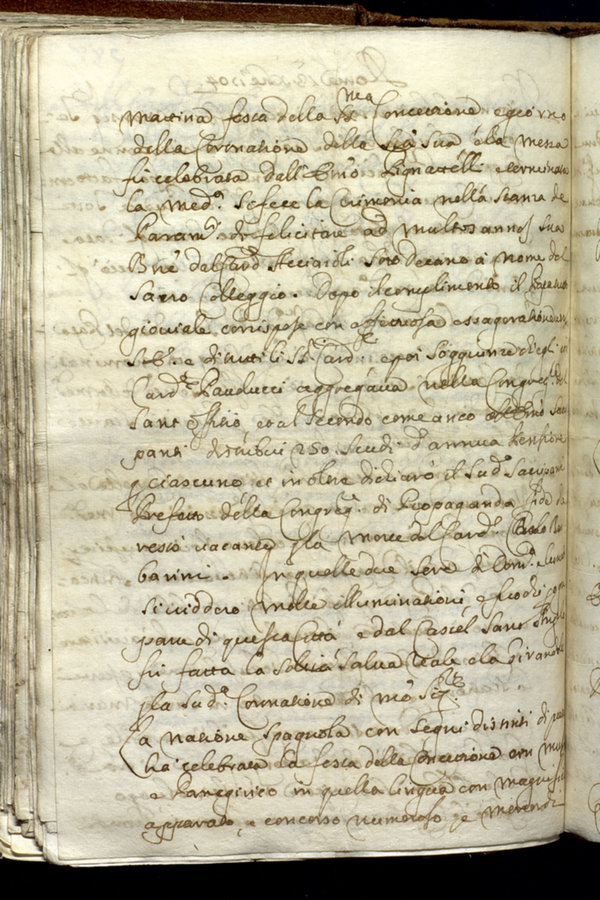 mattina festa della SS.ma Concettione e giorno
della Coronatione della Stà Sua ò la messa
fù celebrata dall'Emo Pignattelli e terminata
la med.a Si fece la Cerimonia nella Stanza de
Param.ti di felicitare ad multos annos Sua
Bne dal Card Acciaioli Sotto Decano à nome del
Sacro Colleggio. Dopo il complimento il Papa
gioviale corrispose con affettuosa essageratione
e di tutti li SS.i Card.i e poi Soggiunse ch'egli il
Card.e Paulucci aggregava nella Congreg.e del
Sant'Offitio, et al Secondo come anco all'Emo Sacri
panti distribui 250. Scudi d'annua Pensione
p ciascuno et inoltre dichiarò il Sud.o Sacripanti
Prefetto della Congreg.e di Propaganda Fide
restò vacante p la morte del Card.e Carlo Bar
barini. In quelle due Sere di Dom.ca e Lunedi
Si viddero molte illuminationi e fuochi
parte di questa Città e dal Castel Sant'Angelo
fù fatta la Solita Salva Reale e la Girandola
p la Sud.a Coronatione di mo Sig.re
La natione Spagnola con Segni distinti di
ha celebrata la festa della Concettione con
e Panegirico in quella lingua con magnifico
apparato, e concorso numeroso, e